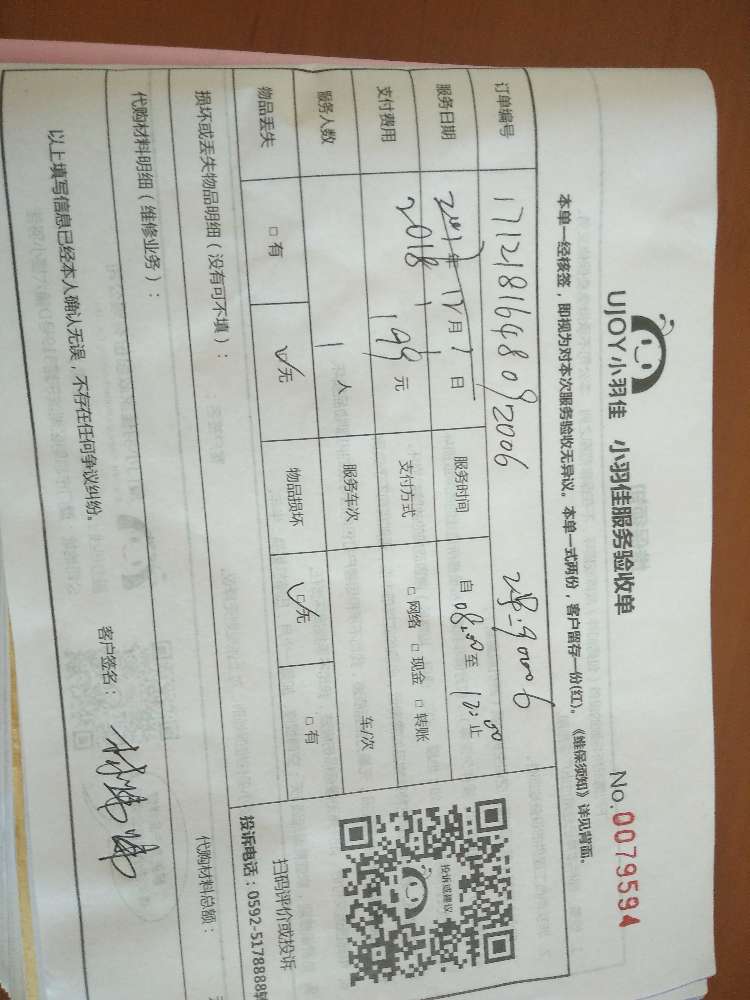 UJOY小羽佳 小羽佳服务验收单 No.0079594
本单一经核签，即视为对本次服务验收无异议。本单一式两份，客户留存一份(红)。《维保须知》详见背面。
订单编号 1712181648092006
服务日期 2017年12月1日 服务时间 自08:00至12:00止
2018 1
支付费用 199元 支付方式 □网络 □现金 □转账
服务人数 1人 服务车次 车/次
物品丢失 □有 ☑无 物品损坏 ☑无 □有
投诉或建议
扫码评价或投诉
投诉电话：0592-5178888转
损坏或丢失物品明细（没有可不填）：
代购材料明细（维修业务）： 代购材料总额：
以上填写信息已经本人确认无误，不存在任何争议纠纷。 客户签名：